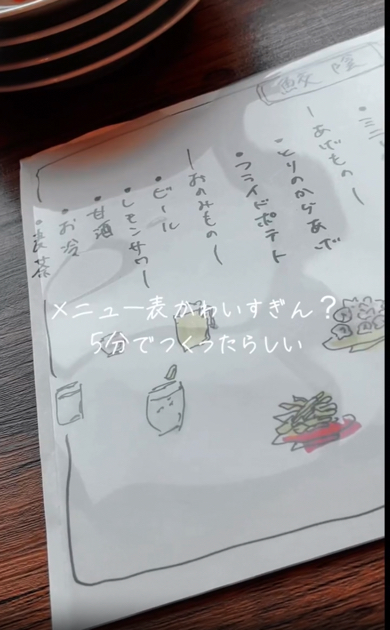 鮫陰
ーあげものー
・とりのからあげ
・フライドポテト
ーおのみものー
・ビール
・レモンサワー
・甘酒
・お冷
メニュー表かわいすぎん？
5分でつくったらしい